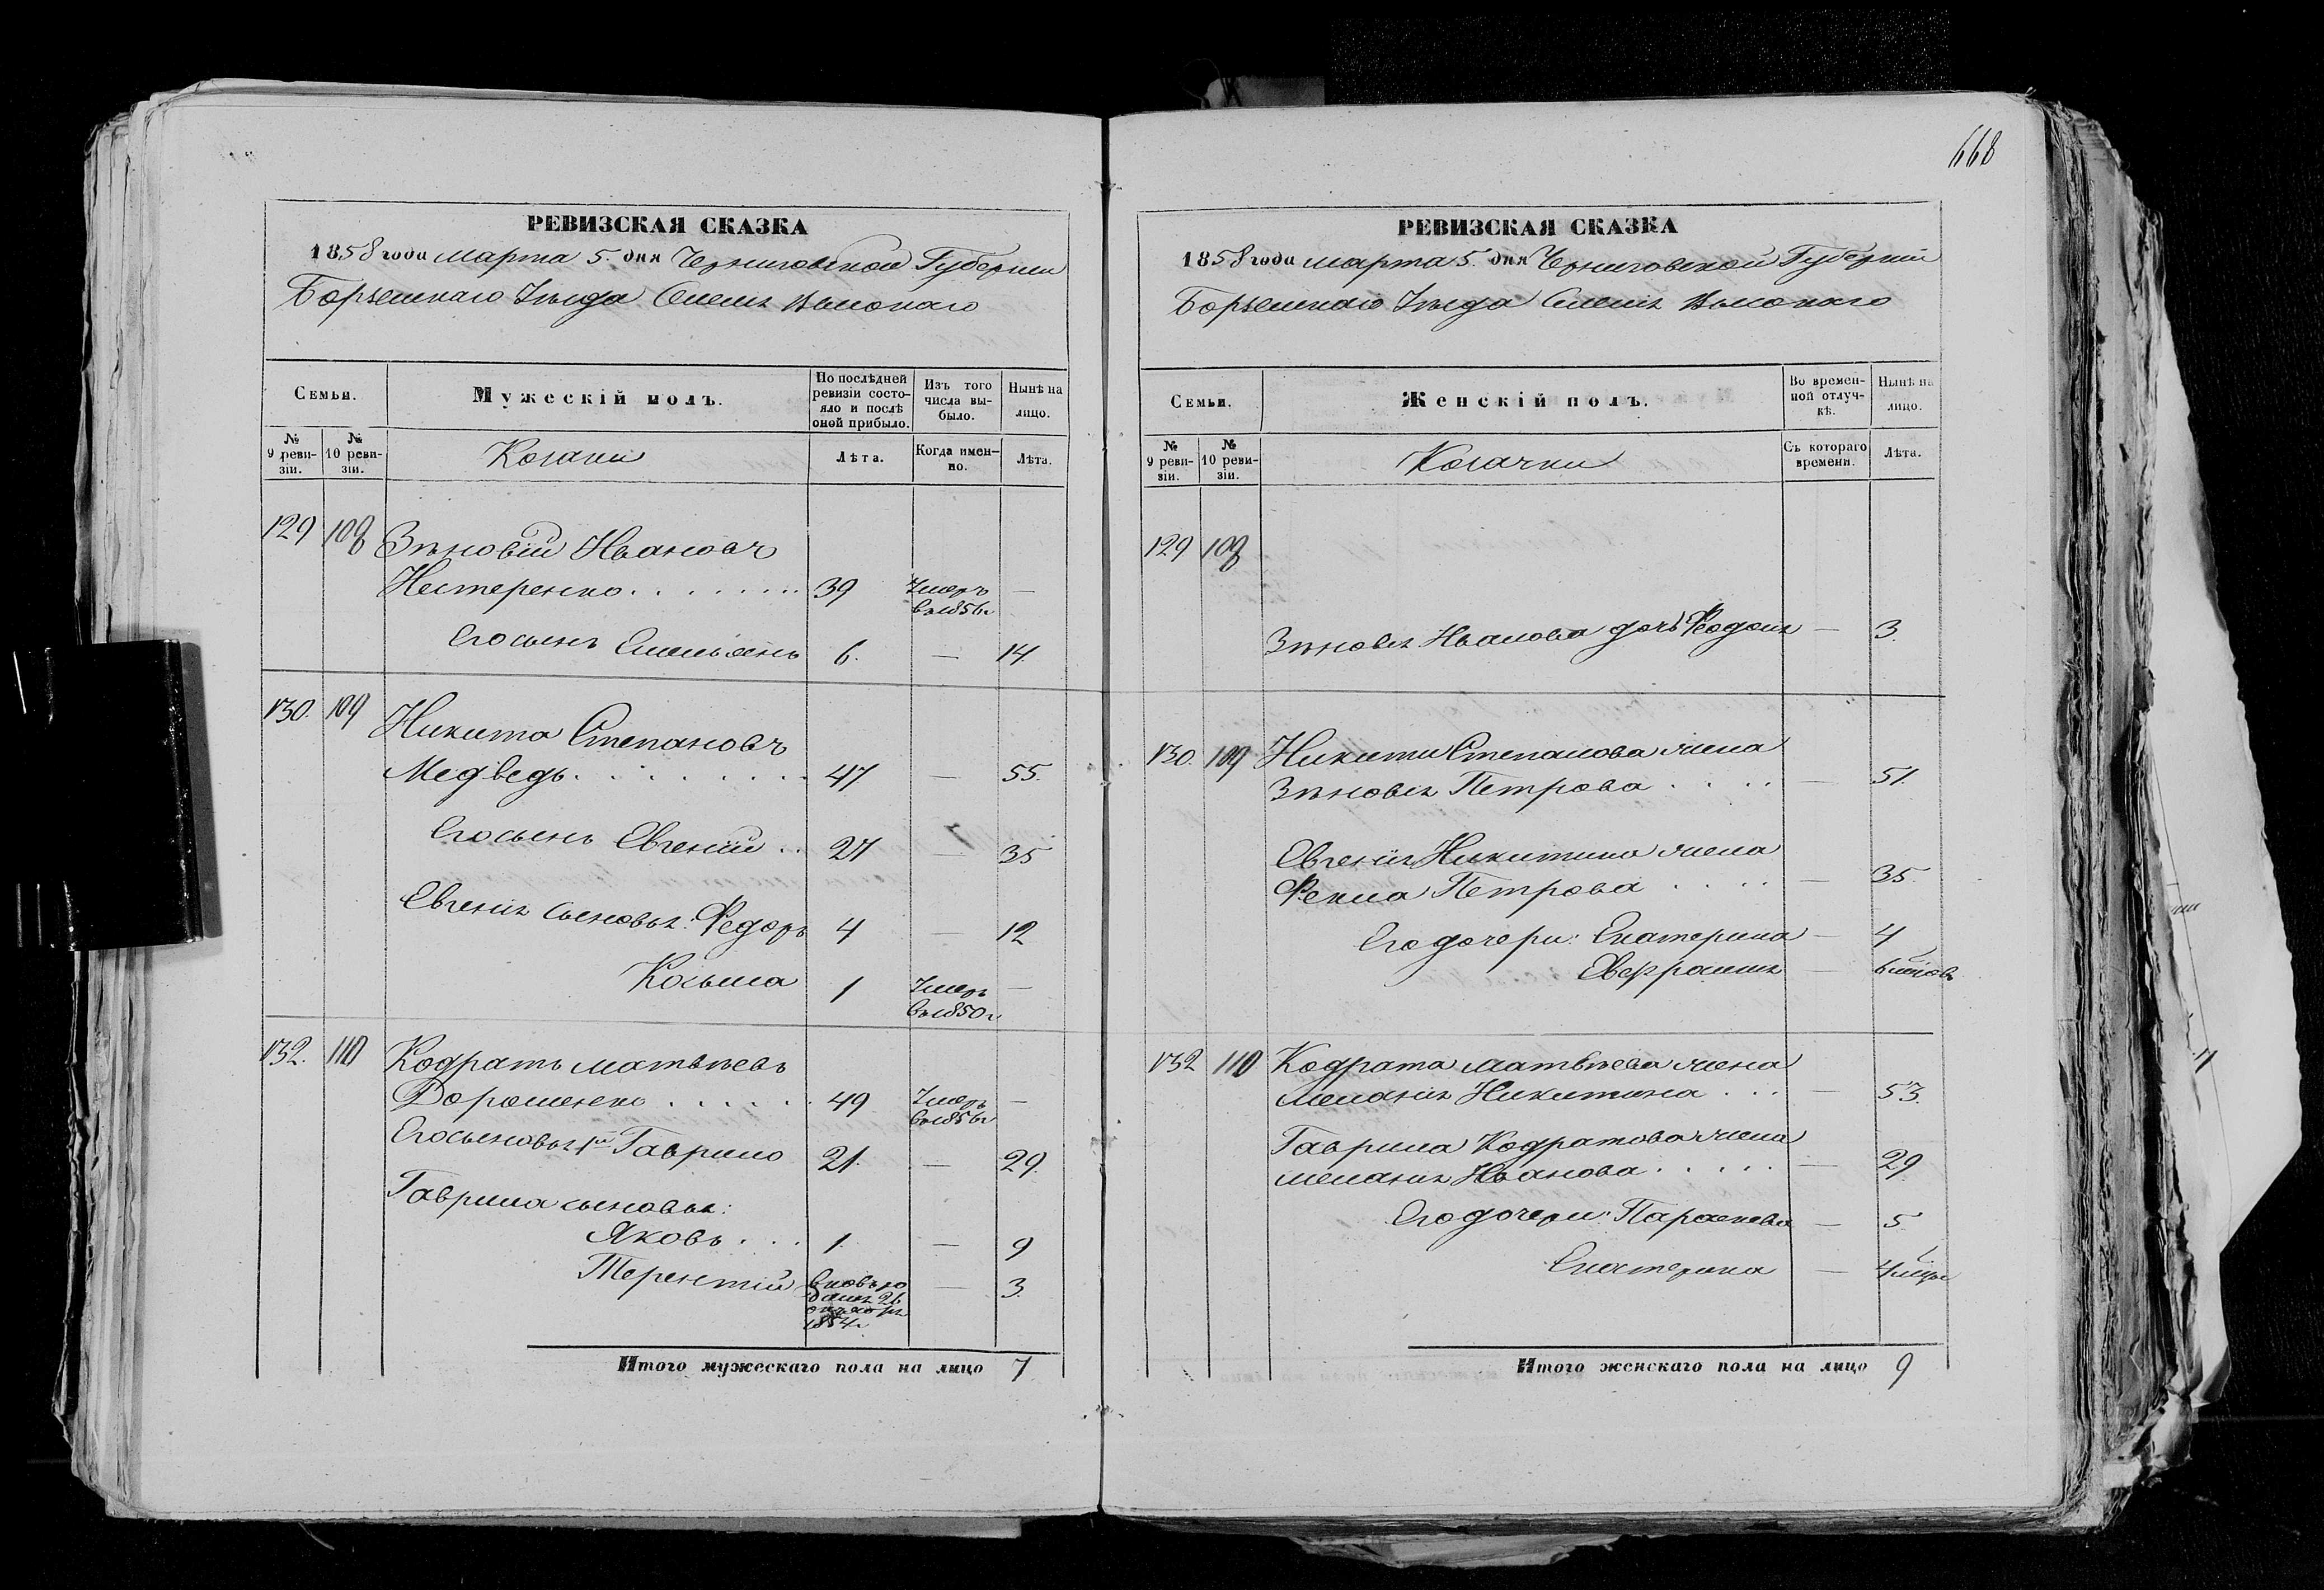 668
РЕВИЗСКАЯ СКАЗКА
1858 года марта 5. дня Черниговской Губернии
Борзенскаго Уѣзда
Семьи.
Мужескій полъ.
По послѣдней ревизіи состояло и послѣ оной прибыло.
Изъ того числа выбыло.
Нынѣ на лицо.
№ 9 ревизіи.
№ 10 ревизіи.
Козаки
Лѣта.
Когда именно.
Лѣта.
129 108 Зѣновій Ивановъ
Нестеренко 39 Умеръ —
въ 1856г
Его сынъ Емельянъ 6. — 14.
130. 109 Никита Степановъ
Медведь 47 — 55.
Его сынъ Евгеній 27 — 35
Евгенія сыновья: Федоръ 4 — 12
Козьма 1 Умеръ —
въ 1850г
132. 110 Кодратъ Матвѣевъ
Дорошенко 49 Умеръ —
въ 1856г
Его сыновья 1й Гаврило 21. — 29.
Гаврила сыновья:
Яковъ 1. — 9
Терентій вновь ро — 3.
дился 26
октября
1854г
Итого мужескаго пола на лицо 7
РЕВИЗСКАЯ СКАЗКА
1858 года марта 5. дня Черниговской Губерніи
Борзенскаго Уѣзда
Семьи.
Женскій полъ.
Во временной отлучкѣ.
Нынѣ на лицо.
№ 9 ревизіи.
№ 10 ревизіи.
Козачки
Съ котораго времени.
Лѣта.
129 108
Зѣновія Иванова дочь — 3.
130. 109 Никиты Степанова жена
Зѣновія Петрова — 51.
Евгенія Никитина жена
Фекла Петрова — 35
Его дочери: Екатерина — 4
— 6
132 110 Кодрата Матвѣева жена
Меланія Никитина — 53.
Гаврила Кодратова жена
Меланія Иванова — 29
Его дочери: Параскева — 5.
Екатерина — 4
Итого женскаго пола на лицо 9